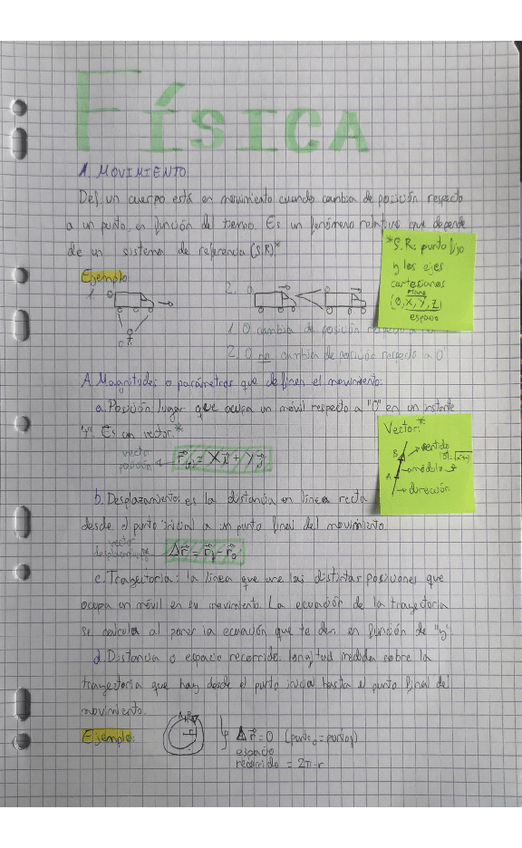 FÍSICA
1. MOVIMIENTO
Def: un cuerpo está en movimiento cuando cambia de posición respecto
a un punto, en función del tiempo. Es un fenómeno relativo que depende
de un sistema de referencia (S.R)*
*S.R: punto fijo
y los ejes
cartesianos
plano
(O, X, Y, Z)
espacio
Ejemplo:
1. O
2. O
1. O cambia de posición respecto a
2. O no cambia de posición respecto a O'
A. Magnitudes o parámetros que definen el movimiento:
a. Posición: lugar que ocupa un móvil respecto a "O" en un instante
Es un vector.*
vector
posición
Vector:*
B
sentido
módulo
A
dirección
b. Desplazamiento: es la distancia en línea recta
desde el punto inicial a un punto final del movimiento.
vector
desplazamiento
c. Trayectoria: la línea que une las distintas posiciones que
ocupa en móvil en su movimiento. La ecuación de la trayectoria
se calcula al poner la ecuación que te den en función de "y"
d. Distancia o espacio recorrido: longitud medida sobre la
trayectoria que hay desde el punto inicial hasta el punto final del
movimiento.
Ejemplo:
r
espacio
recorrido = 2π·r